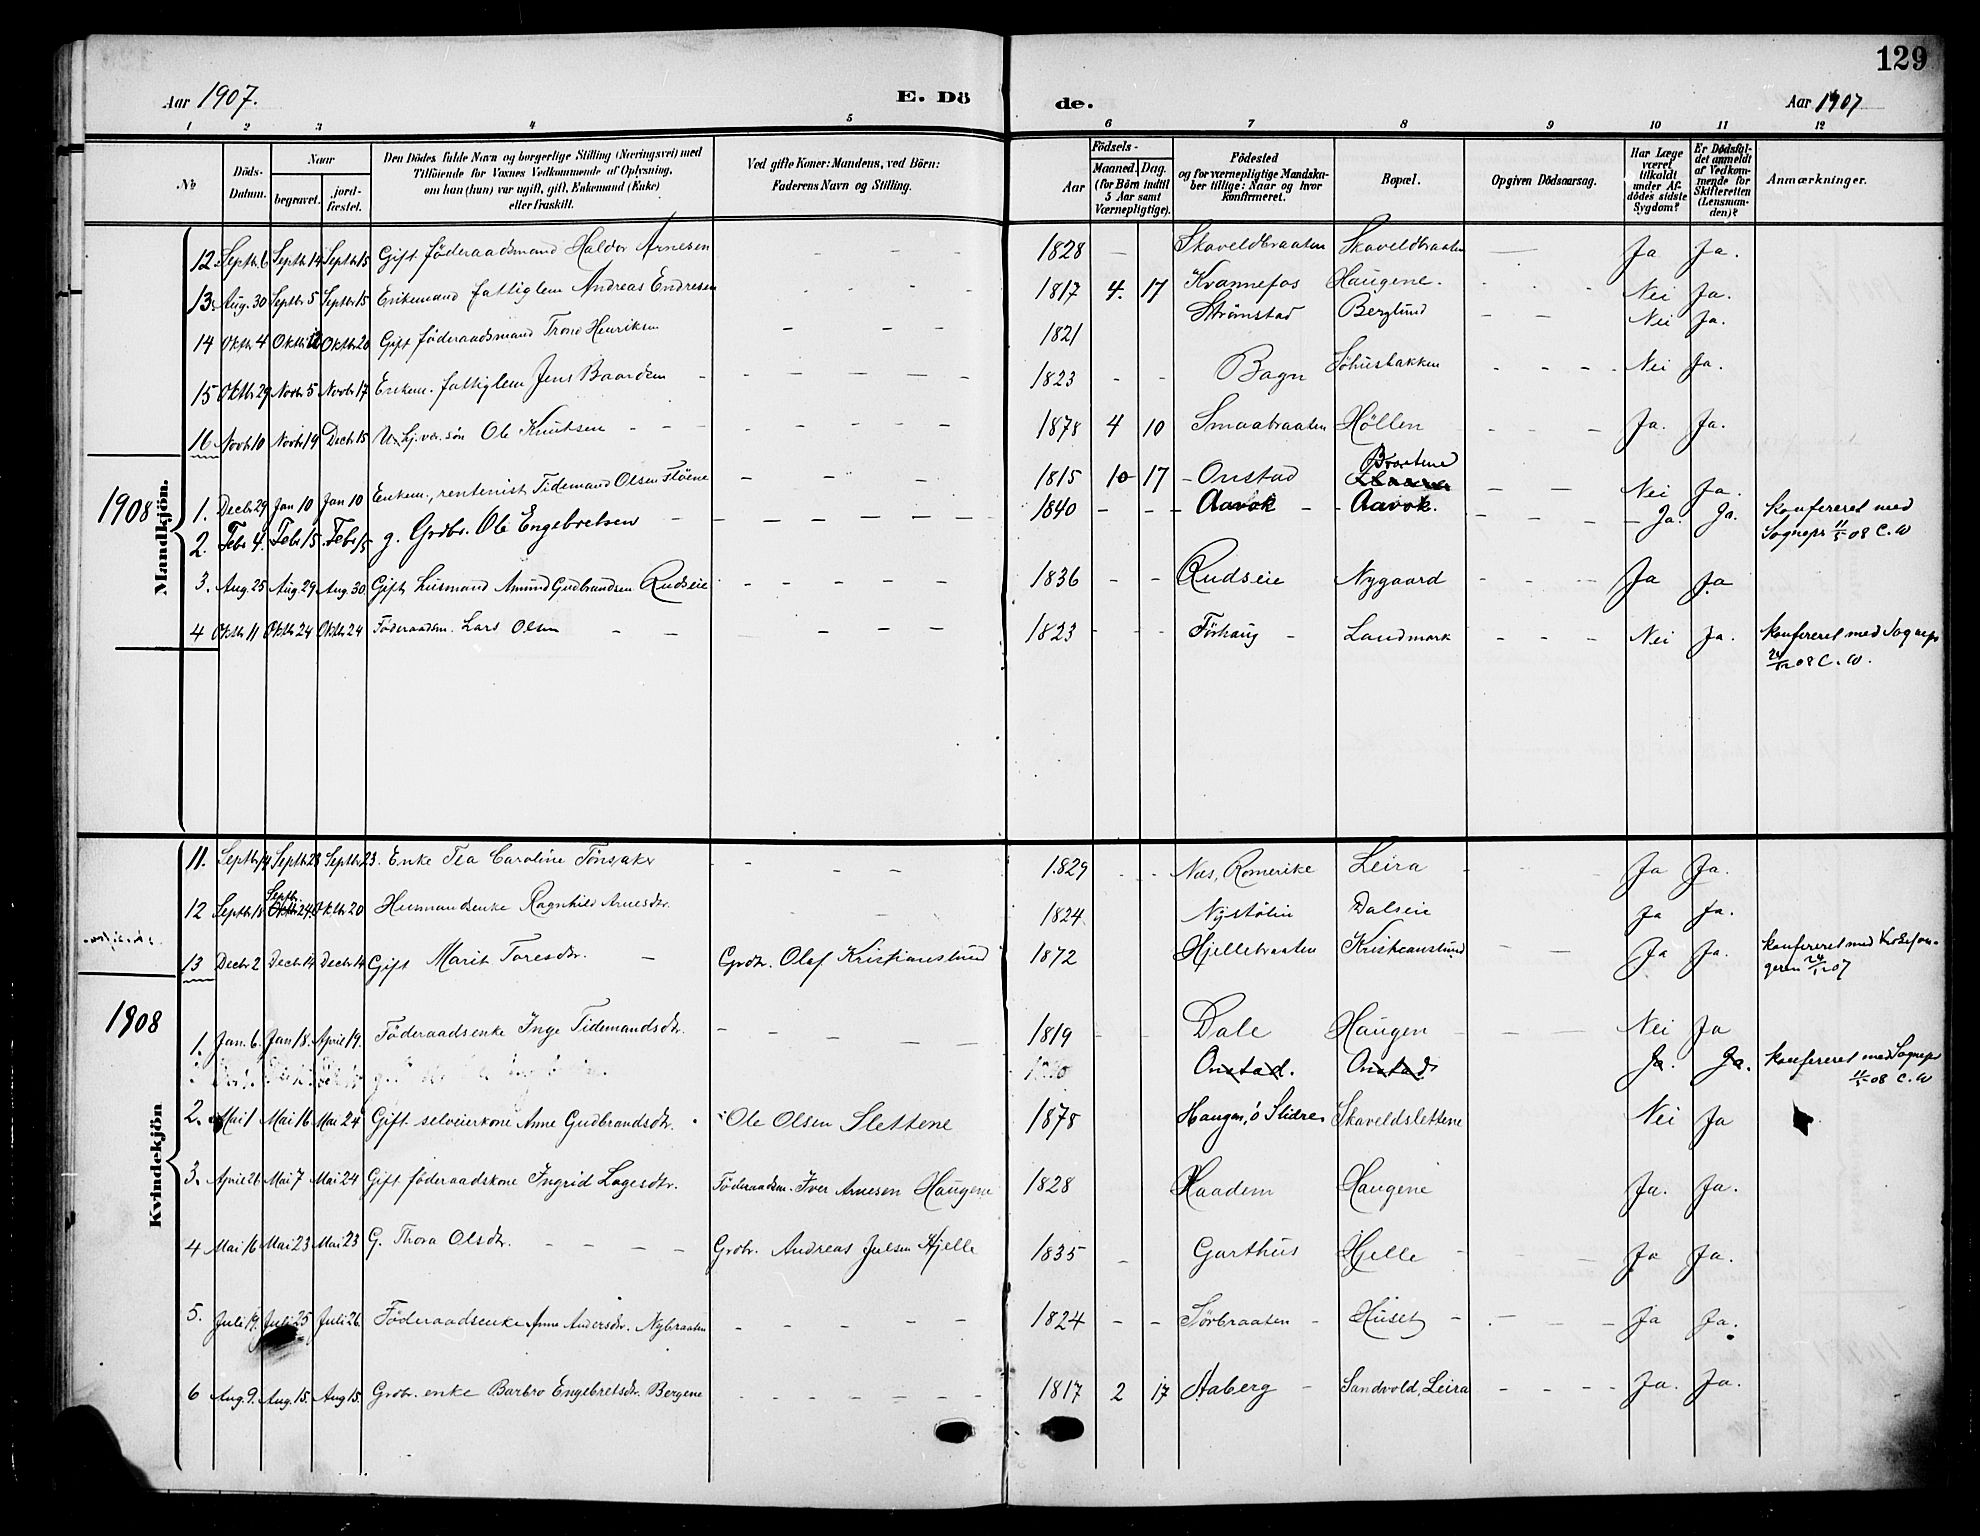 129
Aar 1907. E. Dö de. Aar 1907
1 2 3 4 5 6 7 8 9 10 11 12
No Döds-Datum. Naar begravet. jordfæstet. Den Dödes fulde Navn og borgerlige Stilling (Næringsvei) med Tilföiende for Voxnes Vedkommende af Oplysning, om han (hun) var ugift, gift, Enkemand (Enke) eller fraskilt. Ved gifte Koner: Mandens, ved Börn: Faderens Navn og Stilling. Födsels- Aar Maaned. Dag. (for Börn indtil 5 Aar samt Værnepligtige). Födested og for værnepligtige Mandskaber tillige: Naar og hvor konfirmeret. Bopæl. Opgiven Dödsaarsag. Har Læge været tilkaldt under Afdödes sidste Sygdom? Er Dödsfaldet anmeldt af Vedkommende for Skifteretten (Lensmanden)? Anmærkninger.
Mandkjön.
12. Septbr 6 Septbr 14 Septbr 15 Gift föderaadsmand Haldor Arnesen 1828 Skaveldbraaten Skaveldbraaten Ja Ja.
13. Aug. 30 Septbr 5 Septbr 15 Enkemand fattiglem Andreas Endresen 1817 4. 17 Kvannefos Haugene. Nei Ja.
14 Oktbr 4 Oktbr 12 Oktbr 20 Gift föderaadsmand Trond Henriksen 1821 Strømstad Berglund Nei Ja.
15 Oktbr 29 Novbr 5 Novbr 17 Enkem. fattiglem Jens Baardsen 1823 Bagn Nei Ja.
16 Novbr 10 Novbr 19 Decbr 15 søn Ole Knutsen 1878 4 10 Smaabraaten Höllen Ja. Ja.
1908
1. Decbr 29 Jan 10 Jan 10 Enkem., rentenist Tidemand Olsen Flöene 1815 10 17 Onstad Braatene Nei Ja.
2. Febr 4. Febr 15 Febr 15 g. Grdbr. Ole Engebretsen 1840 Aavok Aavok. Ja. Ja. Konfereret med
Sognepr 11/5 08 C. W
3. Aug. 25 Aug 29 Aug. 30 Gift husmand Amund Gudbrandsen Rudseie 1836 Rudseie Nygaard Ja Ja
4 Oktbr 11 Oktbr 24 Oktbr 24 Föderaadsm. Lars Olsen 1823 Förhaug Landmark Nei Ja. Konfereret med Sognepr
24/12 08 C. W.
Kvindekjön
11. Septbr 14 Septbr 23 Septbr 23. Enke Tea Caroline Tönsaker 1829 Næs, Romerike Leira Ja Ja.
12 Septbr 18 Septbr 24 Oktbr 20 Husmandsenke Ragnhild Arnesdtr. 1824 Nystølin Dalseie Ja Ja.
13 Decbr 2 Decbr 14 Decbr 14 Gift Marit Toresdtr. Grdbr. Olaf Kristianslund 1872 Hjellebraaten Kristianslund Ja Ja. Konfereret med Kirkesan-
geren 24/12 07
1908
1. Jan. 6. Jan 18. April 19. Föderaadsenke Inge Tidemandsdtr. 1819 Dale Haugen Nei Ja
Onstad. Onstad Ja. Ja. Konfereret med Sognepr
11/5 08 C. W
2. Mai 1 Mai 16 Mai 24 Gift selveierkone Anne Gudbrandsdtr. Ole Olsen Slettene 1878 Haugen, ö Slidre Skaveldslettene Nei Ja
3. April 26 Mai 7 Mai 24 Gift föderaadskone Ingrid Lagesdtr. Föderaadsm. Iver Arnesen Haugene 1828 Haadem Haugene Ja. Ja.
4 Mai 16 Mai 23 Mai 23 G. Thora Olsdtr. Grdbr. Andreas Julsen Hjelle 1835 Garthus Hjelle Ja Ja.
5. Juli 19. Juli 25 Juli 26. Föderaadsenke Anne Andersdtr. Nybraaten 1824 Sörbraaten Huset Ja Ja.
6 Aug. 9. Aug. 15. Aug 15. Grdbr. enke Barbro Engebretsdtr. Bergene 1817 2 17 Aaberg Sandvold, Leira Ja. Ja.